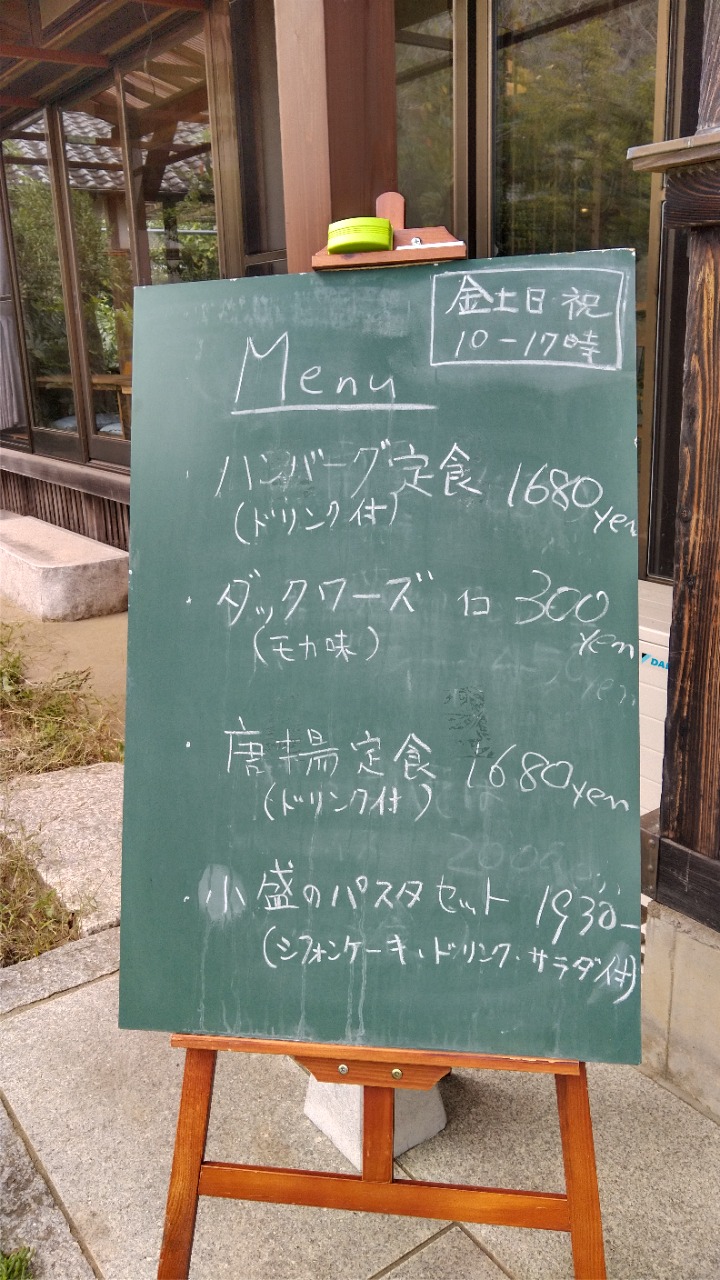 金土日祝
10-17時
Menu
・ハンバーグ定食 1680yen
(ドリンク付)
・ダックワーズ 1コ 300yen
(モカ味)
・唐揚定食 1680yen
(ドリンク付)
・小盛のパスタセット 1930-
(シフォンケーキ・ドリンク・サラダ付)